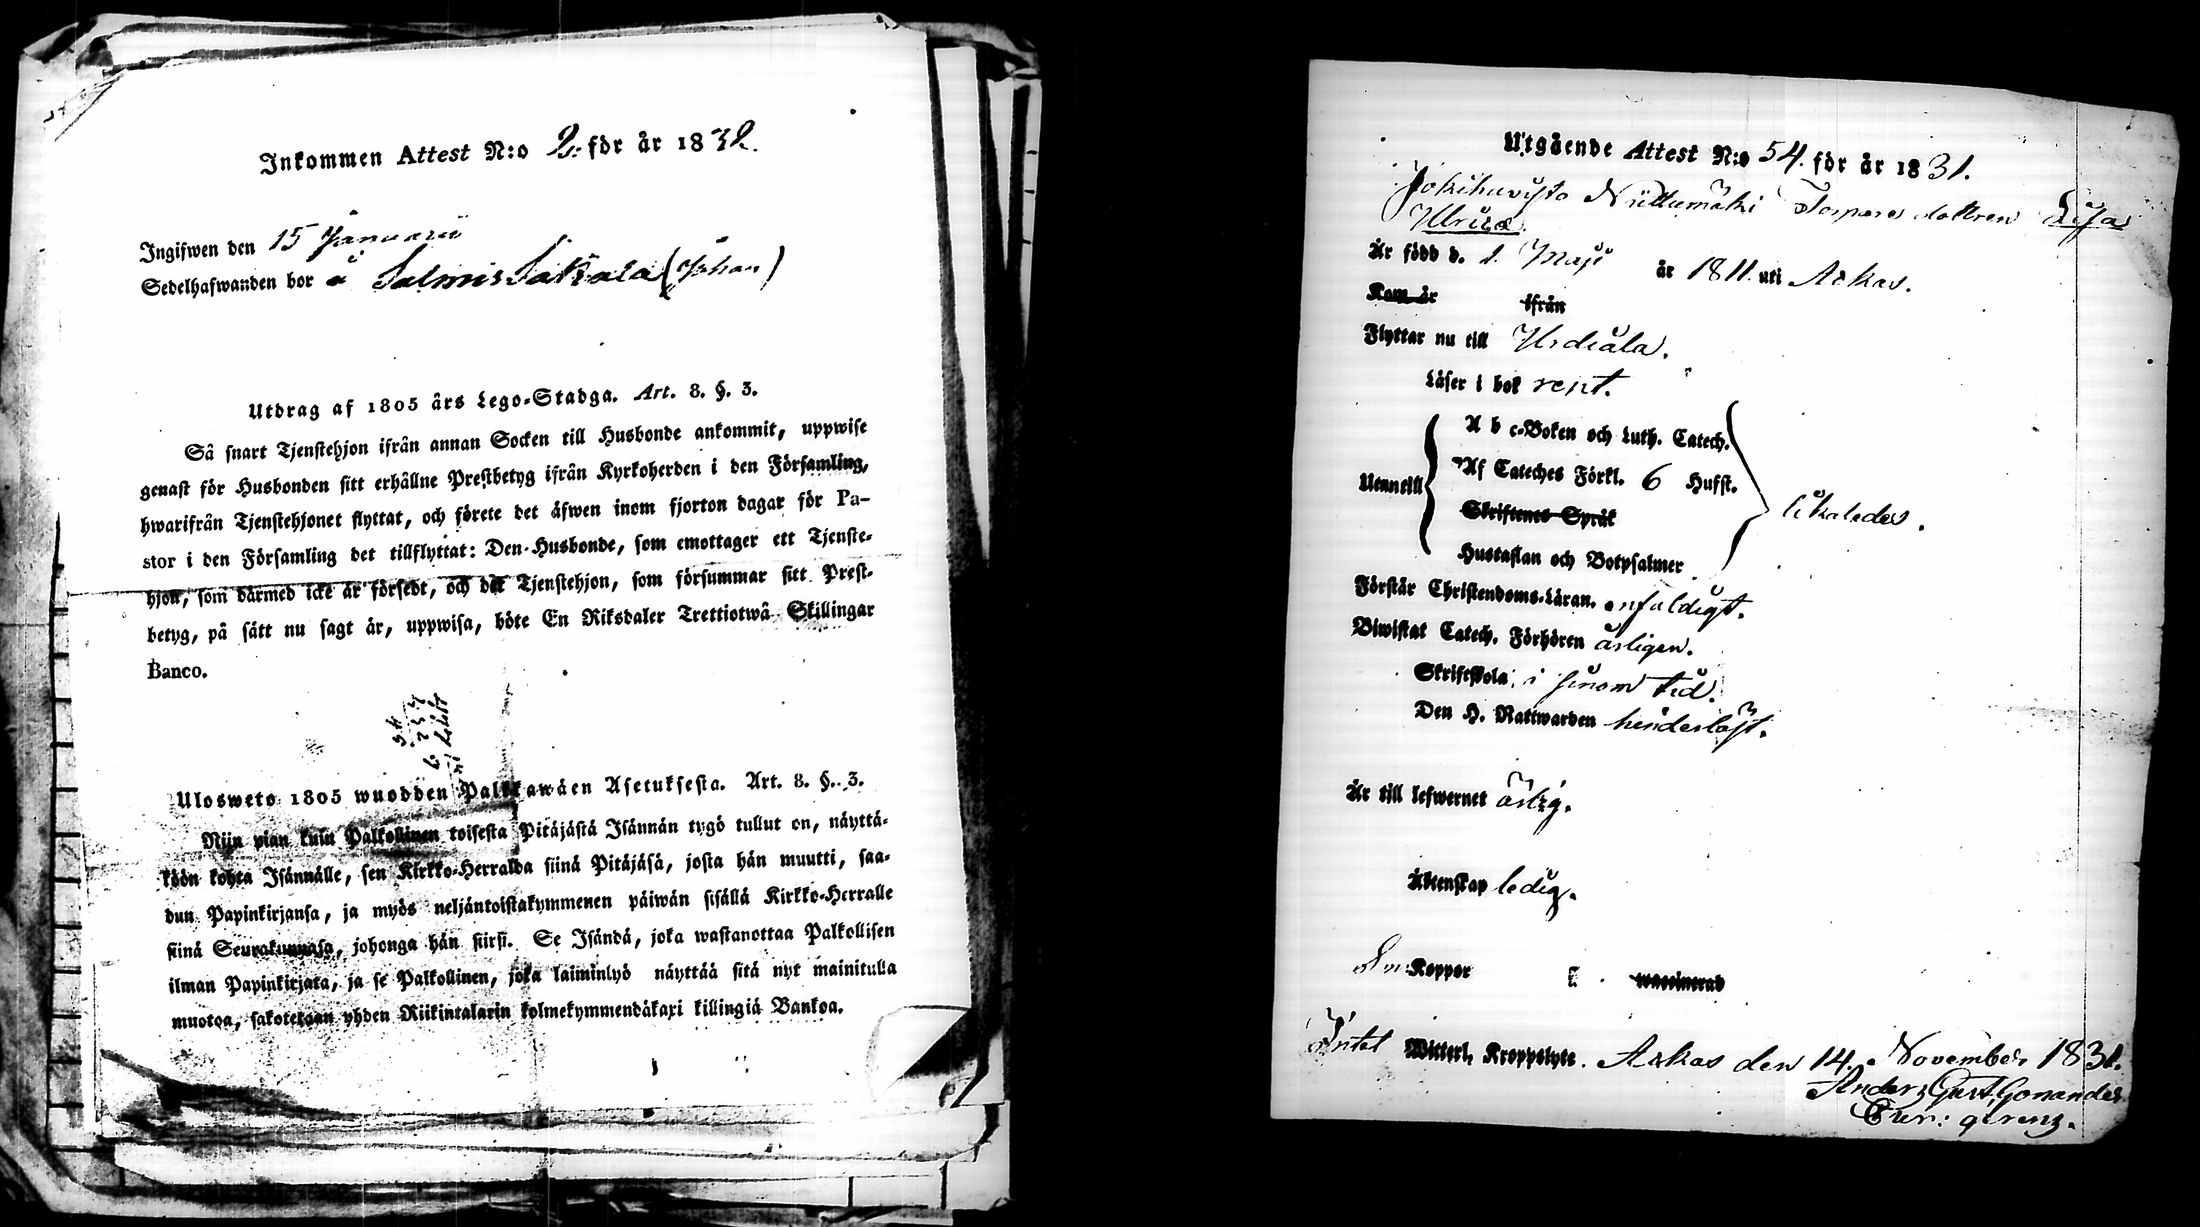 Inkommen Attest N:o 2: för år 1832.
Ingifwen den 15 Januarii
Sedelhafwanden bor å Salmis Sakala (Johan)
Utdrag af 1805 års Lego-Stadga. Art. 8. §. 3.
Så snart Tjenstehjon ifrån annan Socken till Husbonde ankommit, uppwise
genast för Husbonden sitt erhållne Prestbetyg ifrån Kyrkoherden i den Församling,
hwarifrån Tjenstehjonet flyttat, och förete det äfwen inom fjorton dagar för Pa-
stor i den Församling det tillflyttat: Den Husbonde, som emottager ett Tjenste-
hjon, som därmed icke är försedt, och det Tjenstehjon, som försummar sitt Prest-
betyg, på sätt nu sagt är, uppwisa, böte En Riksdaler Trettiotwå Skillingar
Banco.
Ulosweto 1805 wuodden Palkkawäen Asetuksesta. Art. 8. §. 3.
Nijn pian kuin Palkollinen toisesta Pitäjästä Isännän tygö tullut on, näyttä-
köön kohta Isännälle, sen Kirkko-Herralda siinä Pitäjäsä, josta hän muutti, saa-
dun Papinkirjansa, ja myös neljäntoistakymmenen päiwän sisällä Kirkko-Herralle
siinä Seurakunnasa, johonga hän siirsi. Se Isändä, joka wastanottaa Palkollisen
ilman Papinkirjata, ja se Palkollinen, joka laiminlyö näyttää sitä nyt mainitulla
muotoa, sakotetaan yhden Riikintalarin kolmekymmendäkaxi killingiä Bankoa.
Utgående Attest N:o 54. för år 1831.
Jokihavisto Niittumäki Torpare dottren Lisa
Ulrica
Är född d. 1. Maji år 1811. uti Askas.
Kom år ifrån
Flyttar nu till Urdiala.
Läser i bok rent.
A b c-Boken och Luth. Catech.
Af Cateches Förkl. 6 Hufst.
Utantill likaledes.
Skriftenes Språk
Hustaflan och Botpsalmer
Förstår Christendoms-Läran. enfaldigt.
Biwistat Catech. Förhören årligen.
Skriftskola i sinom tid.
Den H. Nattwarden hinderlöst.
Är till lefwernet ärlig.
Äktenskap ledig.
Koppor waccinerad
Intet Witterl. Kroppslyte. Askas den 14. November 1831.
Anders Gust. Gonander
Cur: gerens.